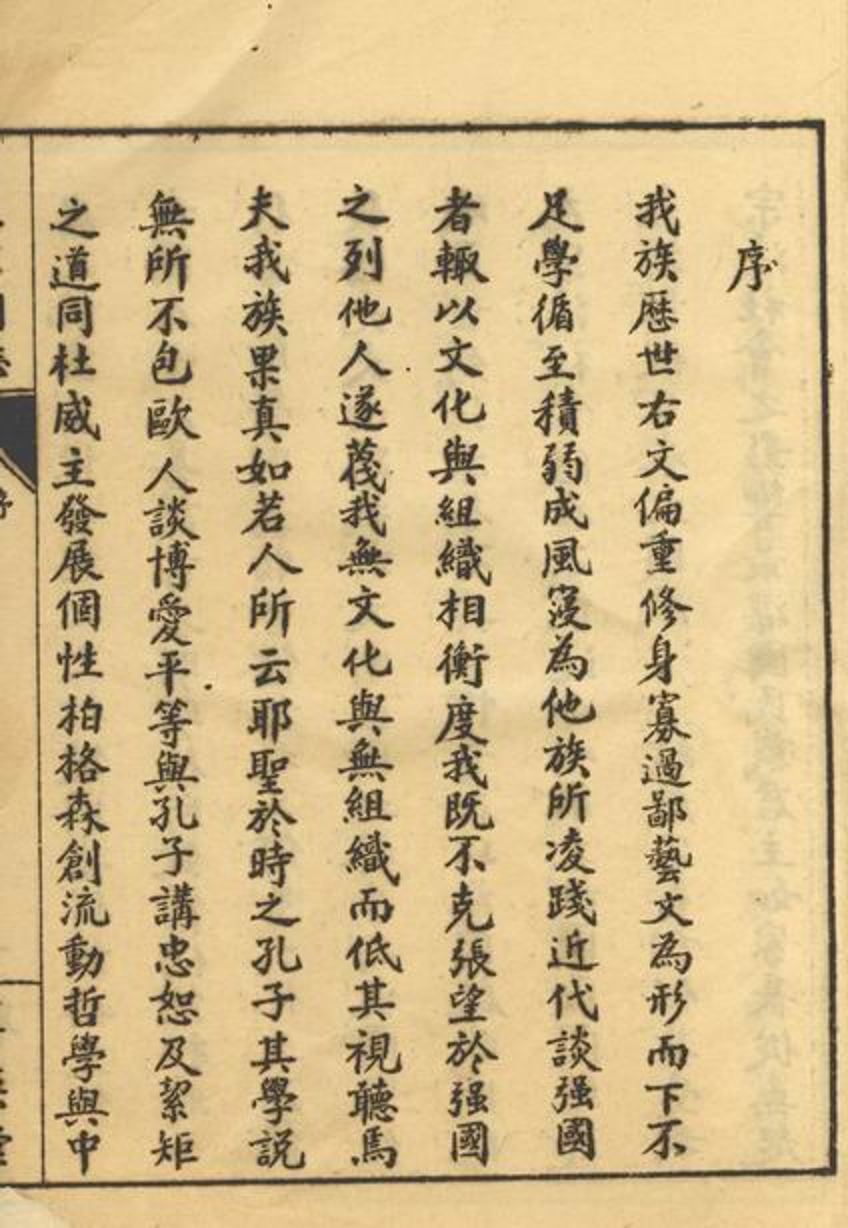 序
我族歷世右文偏重修身寡過鄙藝文為形而下不
足學循至積弱成風寖為他族所凌踐近代談强國
者輒以文化與組織相衡度我既不克張望於强國
之列他人遂蔑我無文化與無組織而低其視聽焉
夫我族果真如若人所云耶聖於時之孔子其學説
無所不包歐人談博愛平等與孔子講忠恕及絜矩
之道同杜威主發展個性柏格森創流動哲學與中